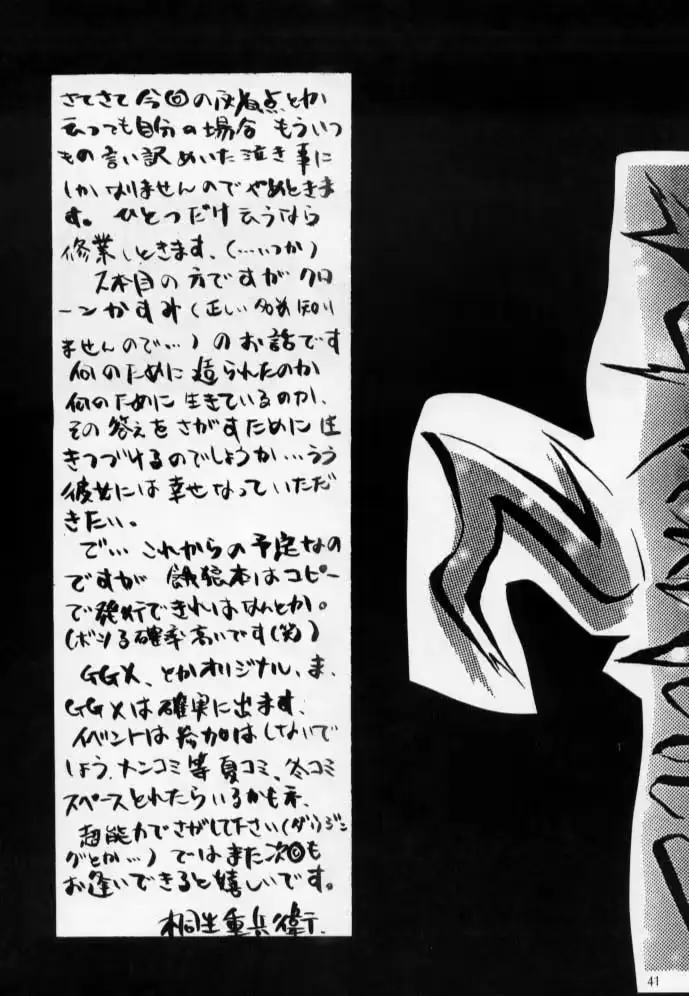 さてさて今回の反省点とか
云っても自分の場合 もういつ
もの言い訳めいた泣き事に
しかなりませんのでやめときま
す。ひとつだけ云うなら
修業しときます、(……いつか)
2本目の方ですがクロ
ーンかすみ(正しい名前知り
ませんので…)のお話です
何のために造られたのか
何のために生きているのか、
その答えをさがすために生
きつづけるのでしょうか…うう
彼女には幸せなっていただ
きたい。
で… これからの予定なの
ですが 餓狼本はコピー
で発行できればなんとか。
(ボツる確率高いです(笑)
GGX、とかオリジナル、ま、
GGXは確実に出ます、
イベントは参加はしないで
しょう、ナンコミ等夏コミ、冬コミ
スペースとれたらいるかもネ、
超能力でさがして下さい(ダウジン
グとか…)ではまた次回も
お逢いできると嬉しいです。
桐生重兵衛
41